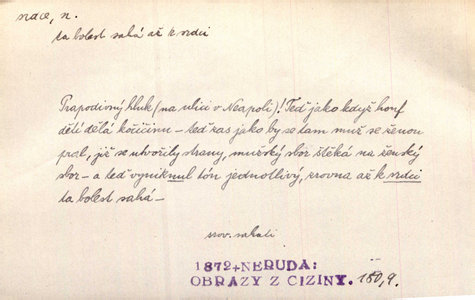 srdce, n.
ta bolest sahá až k srdci
Prapodivný hluk (na ulici v Neapoli)! Teď jako když houf
dětí dělá kočičinu – teď zas jako by se tam muž se ženou
pral, již se utvořily strany, mužský sbor štěká na ženský
sbor – a teď vyniknul tón jednotlivý, zrovna až k srdci
ta bolest sahá –
srov. sahati
1872+NERUDA:
OBRAZY Z CIZINY. 180,9.